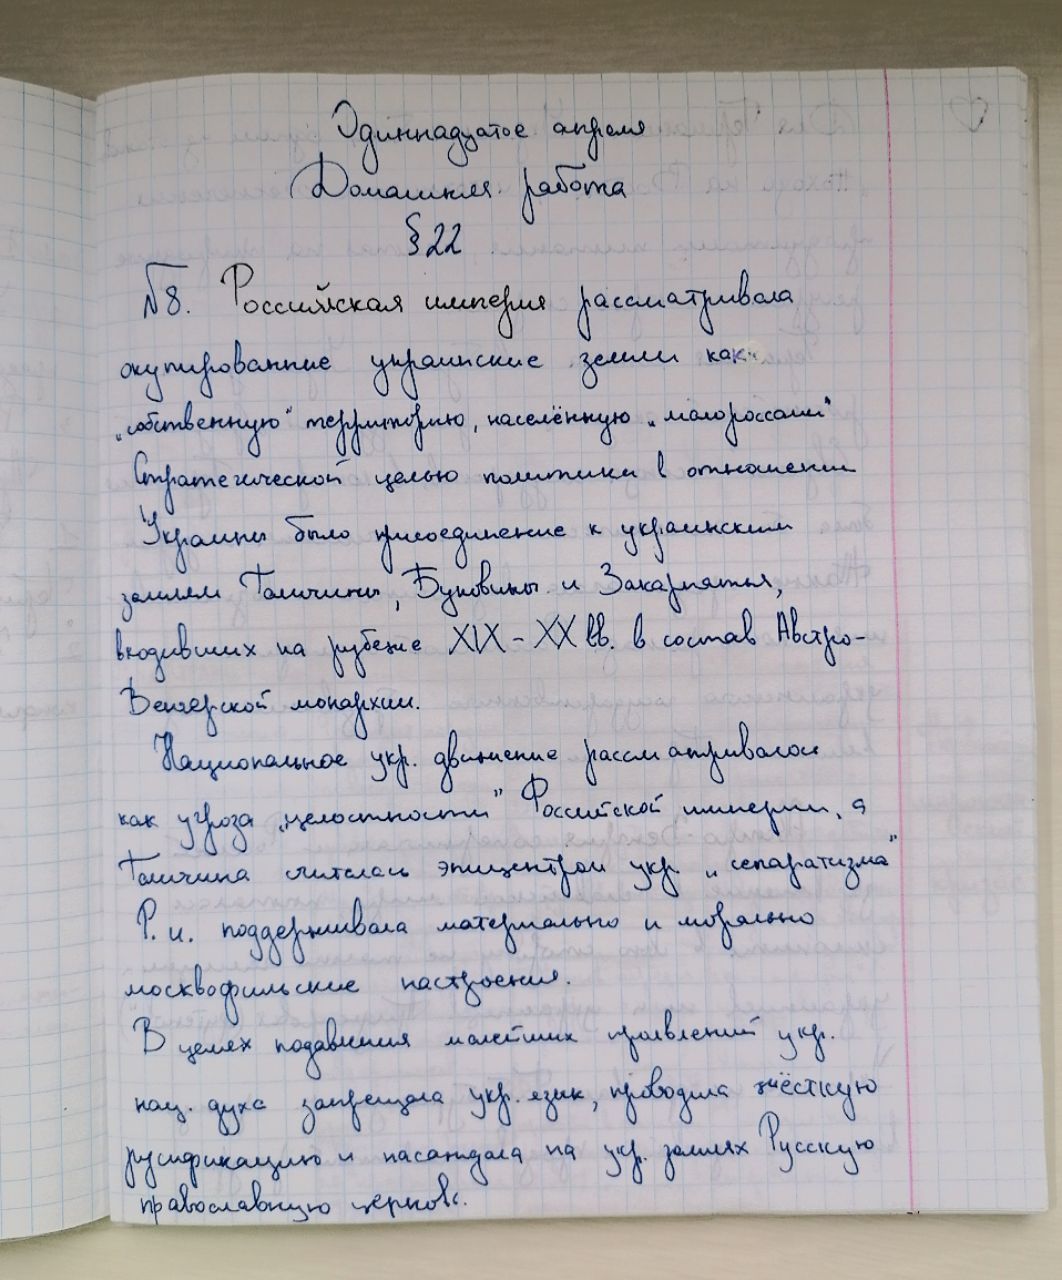 Одиннадцатое апреля
Домашняя работа
§ 22
№8. Российская империя рассматривала
окупированные украинские земли как
„собственную" территорию, населённую „малороссами"
Стратегической целью политики в отношении
Украины было присоединение к украинским
землям Галичины, Буковины и Закарпатья,
входивших на рубеже XIX - XX вв. в состав Австро-
Венгерской монархии.
Национальное укр. движение рассматривалось
как угроза „целостности" Российской империи, а
Галичина считалась эпицентром укр. „сепаратизма"
Р. и. поддерживала материально и морально
москвофильские настроения.
В целях подавления малейших проявлений укр.
нац. духа запрещала укр. язык, проводила жёсткую
русификацию и насаждала на укр. землях Русскую
православную церковь.